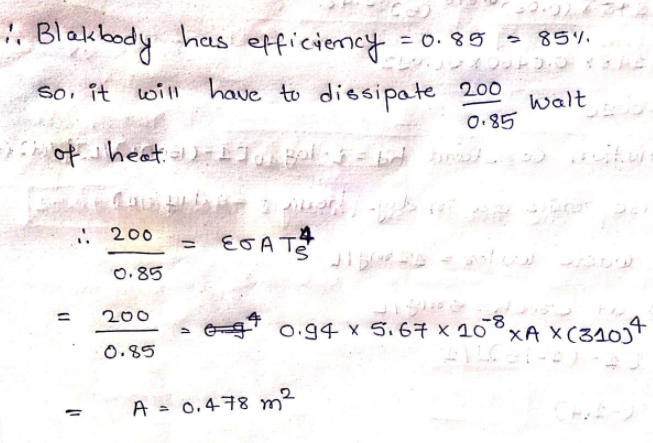 ∴ Blakbody has efficiency = 0.85 = 85%.
so, it will have to dissipate 200/0.85 walt
of heat.
∴ 200/0.85 = εσA Ts⁴
= 200/0.85 = 0.94 x 5.67 x 10⁻⁸ x A x (310)⁴
= A = 0.478 m²